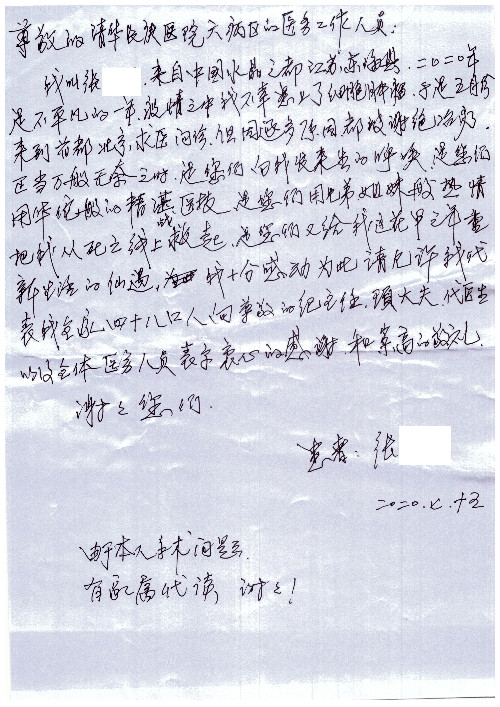 尊敬的清华长庚医院六病区的医务工作人员:
我叫张 , 来自中国水晶之都江苏东海县. 二〇二〇年
是不平凡的一年, 疫情之中我不幸患上了细胞肿瘤. 于是五月份
来到首都北京, 求医问诊, 但因逐多原因都被谢绝
正当万般无奈之时, 是您们向我发来生的呼唤, 是您们
用华佗一般的精湛医技, 是您们用兄弟姐妹般热情
把我从死亡线上救起, 是您们又给我这花甲之年重
新生活的 我十分感动为此请允许我代
表我全家四十八口人向尊敬的纪主任. 项大夫. 代医生
以及全体医务人员表示衷心的感谢和崇高的敬礼.
谢谢您们.
患者: 张
二〇二〇.七.十五
由于本人手术问题
有家属代读 谢谢!